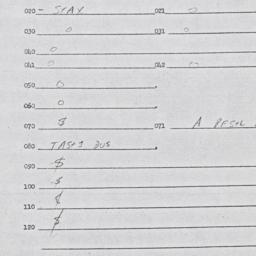 020 - SCAX 021 0
030 0 031 0
040 0
041 0 042 0
050 0
060 0
070 $ 071 A
080 TASK1 BUS
090 $
100 $
110 $
120 $